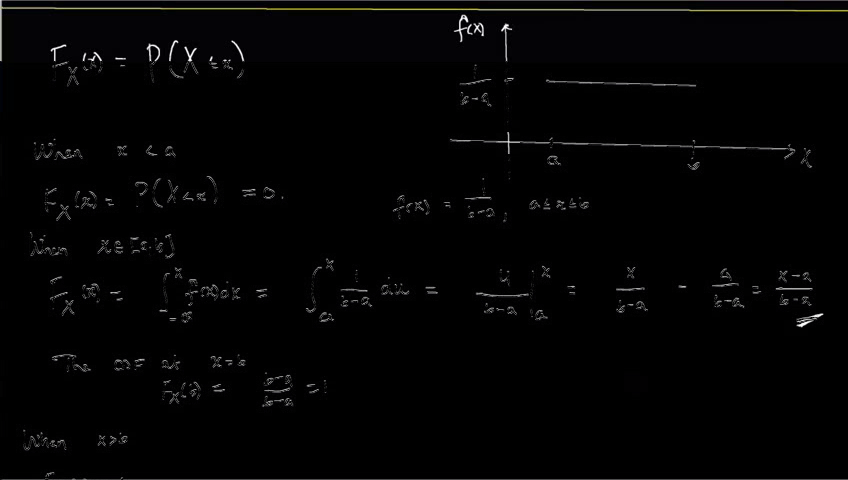 F_X(x) = P(X ≤ x)
f(x)
1/(b-a)
a b x
When x < a
F_X(x) = P(X<x) = 0.
f(x) = 1/(b-a), a≤x≤b
When x ∈ [a,b]
F_X(x) = ∫_{-∞}^{x} f(x)dx = ∫_a^x 1/(b-a) du = u/(b-a) |_a^x = x/(b-a) - a/(b-a) = (x-a)/(b-a)
The CDF at x=b
F_X(b) = (b-a)/(b-a) = 1
When x>b